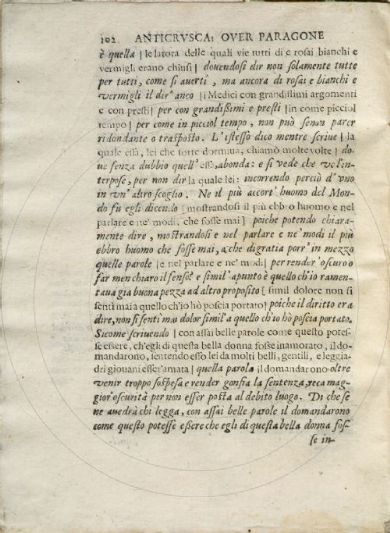 102 ANTICRVSCA; OVER PARAGONE
è quella | le latora delle quali vie tutti di e rosai bianchi e
vermigli erano chiusi | douendosi dir non solamente tutte
per tutti, come si auertì, ma ancora di rosai e bianchi e
vermigli il dir'anco | i Medici con grandissimi argomenti
e con presti | per con grandissimi e presti | in come picciol
tempo | per come in picciol tempo, non può senon parer
ridondante o trasposto. L'istesso dico mentre scriue | la
quale essa, lei che tutte dormiua, chiamò molte volte | do
ue senza dubbio quell'essa, abonda: e si vede che ve l'in-
terpose, per non dir la quale lei: incorrendo perciò d'vno
in vn'altro scoglio. Ne il più accort'huomo del Mon-
do fù egli dicendo | mostrandosi il più ebbro huomo e nel
parlare e ne' modi, che fosse mai | poiche potendo chiara-
mente dire, mostrandosi e nel parlare e ne' modi il più
ebbro huomo che fosse mai, a che digratia porr'in mezzo
quelle parole | e nel parlare e ne' modi | per render'oscuro o
far men chiaro il senso? e simil'apunto è quello ch'io ramen-
taua già buona pezza ad altro proposito | simil dolore non si
sentì mai a quello ch'io hò poscia portato | poiche il diritto era
dire, non si sentì mai dolor simil'a quello ch'io hò poscia portato.
Sicome scriuendo | con assai belle parole come questo potes-
se essere, ch'egli di questa bella donna fosse inamorato, il do-
mandarono, sentendo esso lei da molti belli, gentili, e leggia-
dri giouani esser'amata | quella parola il domandarono oltre
venir troppo sospesa e render gonfia la sentenza, reca mag-
gior'oscurità per non esser posta al debito luogo. Di che se
ne auedrà chi legga, con assai belle parole il domandarono
come questo potesse essere che egli di questa bella donna fos-
se in-